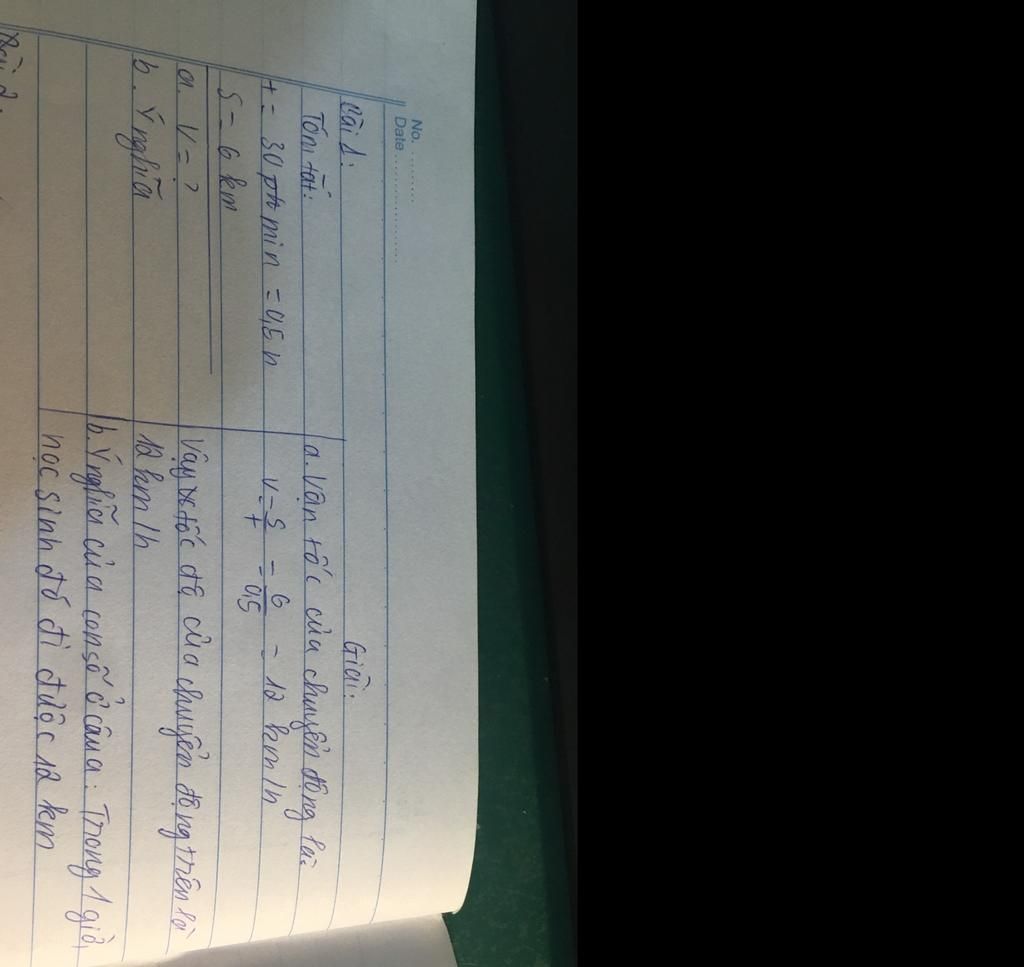 No. ..........
Date ....................
Bài 1:
Tóm tắt:
t = 30 min = 0,5 h
S = 6 km
a. V = ?
b. Ý nghĩa
Giải:
a. Vận tốc của chuyển động là:
V = S/t = 6/0,5 = 12 km/h
Vậy tốc độ của chuyển động trên là
12 km/h
b. Ý nghĩa của con số ở câu a: Trong 1 giờ,
học sinh đó đi được 12 km
Bài 2.